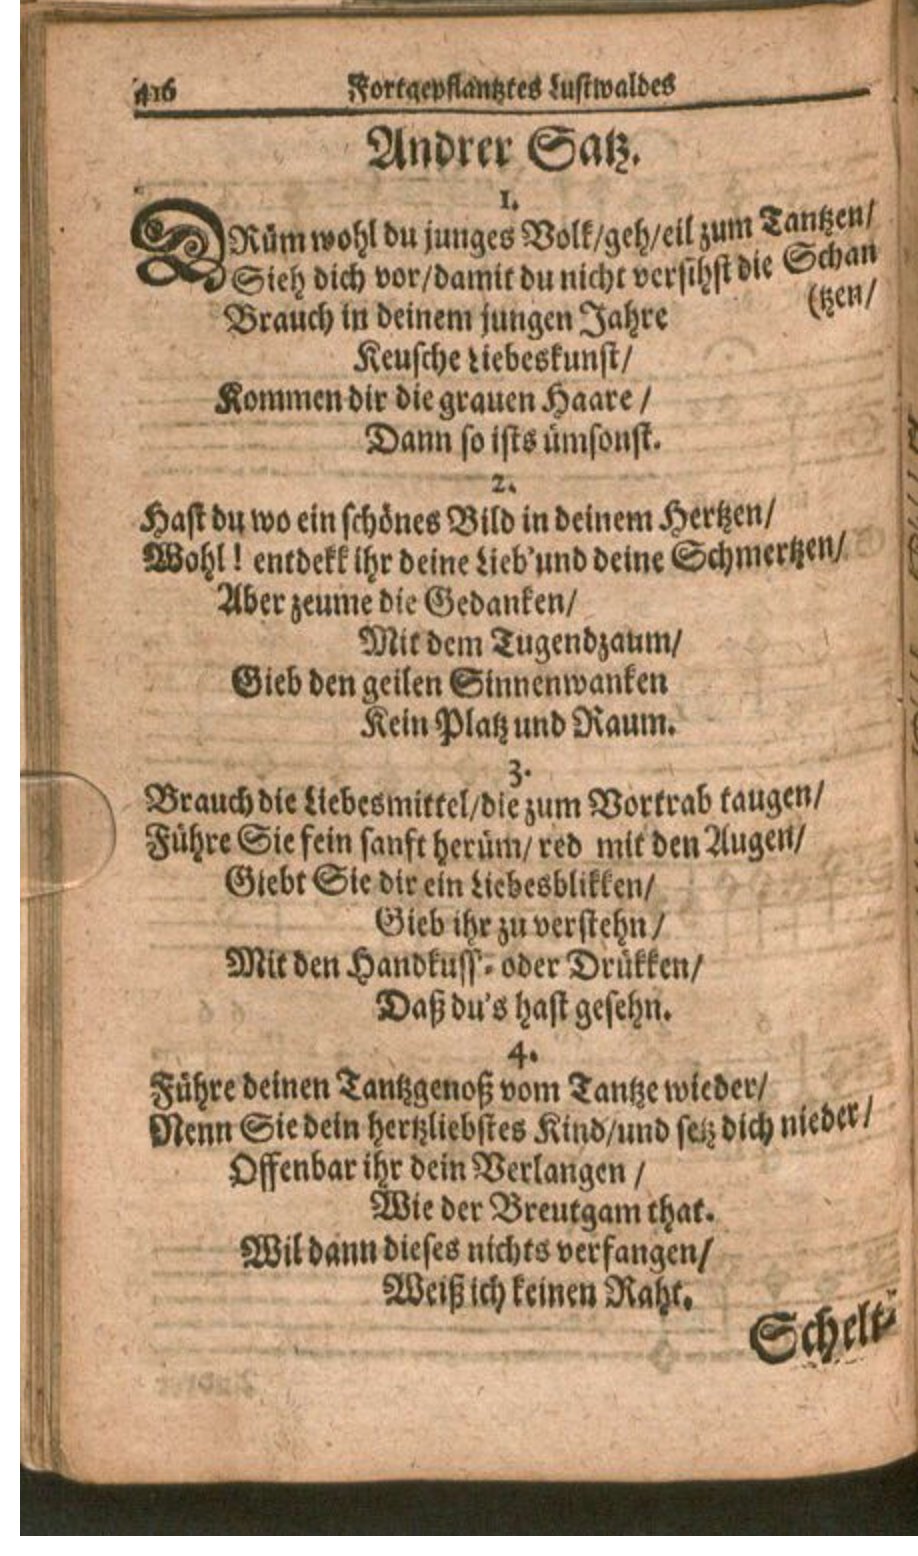 416 Fortgepflantztes Lustwaldes
Andrer Satz.
1.
DRüm wohl du junges Volk/geh/eil zum Tantzen/
Sieh dich vor/damit du nicht versihst die Schan
(tzen/
Brauch in deinem jungen Jahre
Keusche Liebeskunst/
Kommen dir die grauen Haare/
Dann so ists ümsonst.
2.
Hast du wo ein schönes Bild in deinem Hertzen/
Wohl! entdekk ihr deine Lieb'und deine Schmertzen/
Aber zeume die Gedanken/
Mit dem Tugendzaum/
Gieb den geilen Sinnenwanken
Kein Platz und Raum.
3.
Brauch die Liebesmittel/die zum Vortrab taugen/
Führe Sie fein sanft herüm/red mit den Augen/
Giebt Sie dir ein Liebesblikken/
Gieb ihr zu verstehn/
Mit den Handkuss- oder Drükken/
Daß du's hast gesehn.
4.
Führe deinen Tantzgenoß vom Tantze wieder/
Nenn Sie dein hertzliebstes Kind/und setz dich nieder/
Offenbar ihr dein Verlangen/
Wie der Breutgam that.
Wil dann dieses nichts verfangen/
Weiß ich keinen Raht.
Schelt-